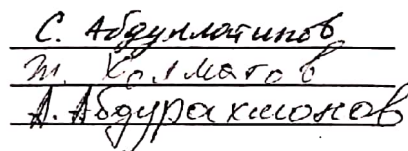 С. Абдуллатипов
Т. Холматов
А. Абдурахмонов